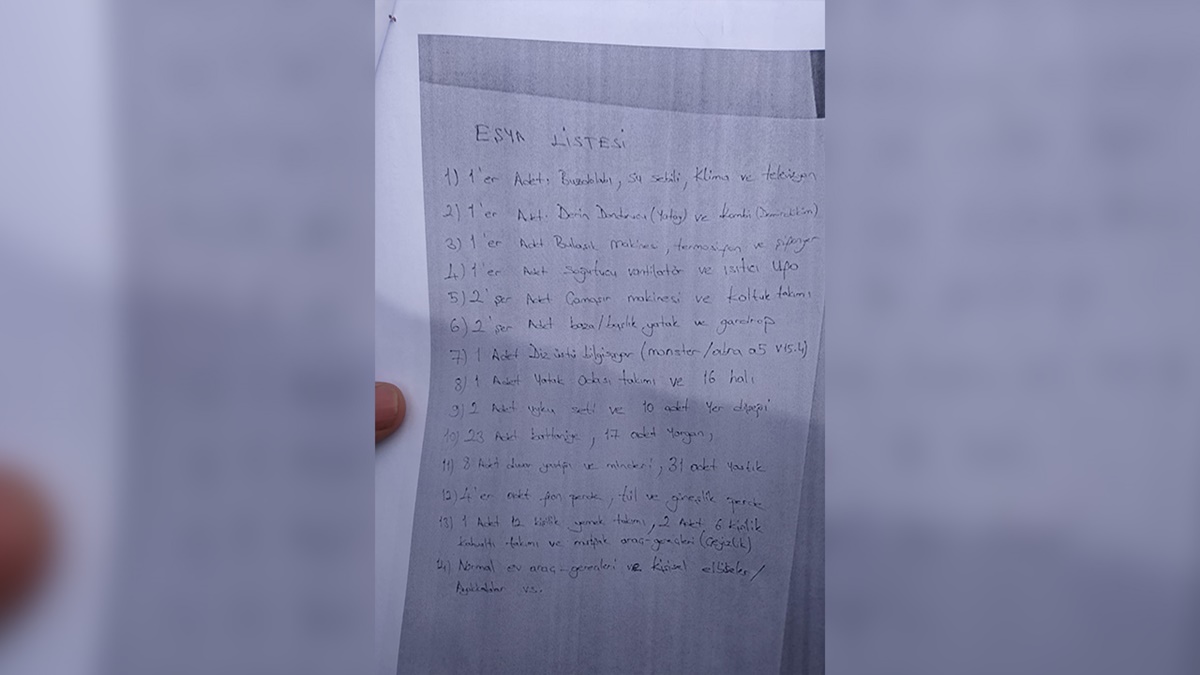 EŞYA LİSTESİ
1) 1'er Adet; Buzdolabı, su sebili, Klima ve televizyon
2) 1'er Adet. Derin Dondurucu (Yatay) ve Kombi (Demirdöküm)
3) 1'er Adet Bulaşık makinesi, termosifon ve şifonyer
4) 1'er Adet soğutucu vantilatör ve ısıtıcı Ufo
5) 2'şer Adet Çamaşır makinesi ve koltuk takımı
6) 2'şer Adet baza/başlık, yatak ve gardrop
7) 1 Adet Diz üstü bilgisayar (monster/abra a5 v15.4)
8) 1 Adet Yatak Odası takımı ve 16 halı
9) 2 Adet uyku seti ve 10 adet Yer döşeği
10) 23 Adet battaniye, 17 adet Yorgan,
11) 8 Adet duvar yastığı ve minderi, 31 adet Yastık
12) 4'er adet fon perde, tül ve güneşlik perde
13) 1 Adet 12 kişilik yemek takımı, 2 Adet 6 kişilik
kahvaltı takımı ve mutfak araç-gereçleri (Çeyizlik)
14) Normal ev araç-gereçleri ve kişisel elbiseler/
Ayakkabılar vs.